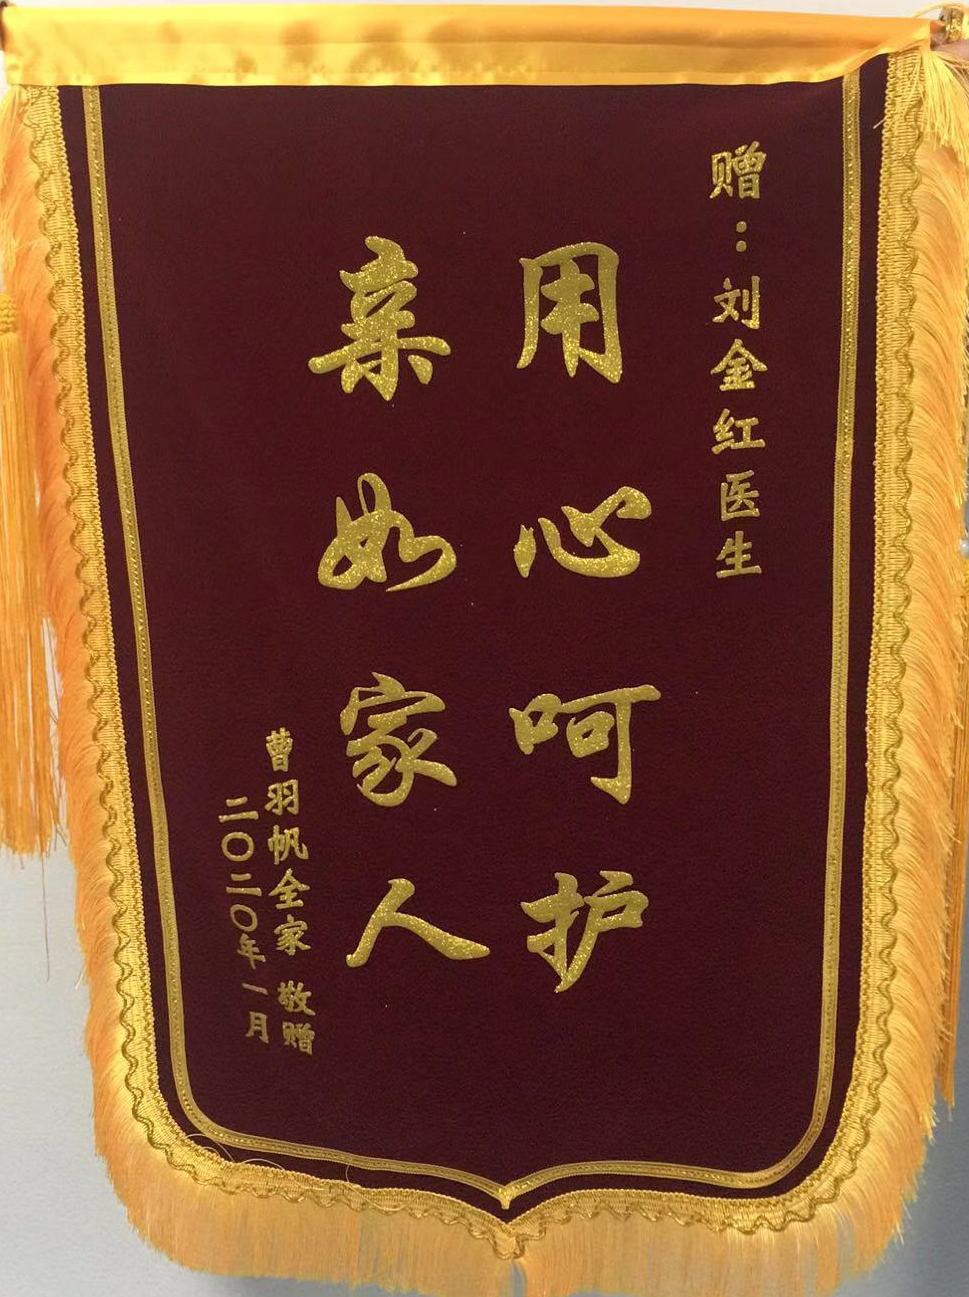 赠：刘金红医生
用心呵护
亲如家人
曹羽帆全家 敬赠
二〇二〇年一月